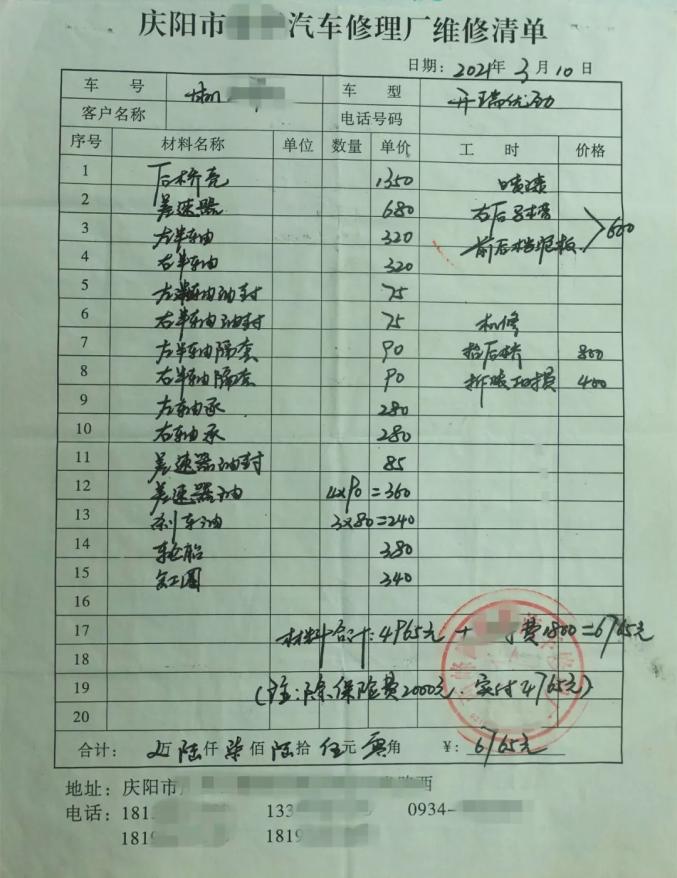 庆阳市 汽车修理厂维修清单
日期: 2021年 3月 10日
车 号 车 型 开瑞优劲
客户名称 电话号码
序号 材料名称 单位 数量 单价 工 时 价格
1 后桥壳 1350 喷漆
2 差速器 680
3 左半车油 320 600
4 右半车油 320
5 左半车油油封 75
6 右半车油油封 75 机修
7 左半车油隔套 90 抬后桥 800
8 右半车油隔套 90 400
9 左轴承 280
10 右轴承 280
11 差速器油封 85
12 差速器油 4×90=360
13 刹车油 3×80=240
14 380
15 钢圈 340
16
17 材料合计: 4965元 + 费1800=6765元
18
19 (注: 除保险费2000元. 实付4765元)
20
合计: 万 陆仟 柒佰 陆拾 伍元 零角 ¥: 6765元
地址: 庆阳市
电话: 181 133 0934-
1819 1819